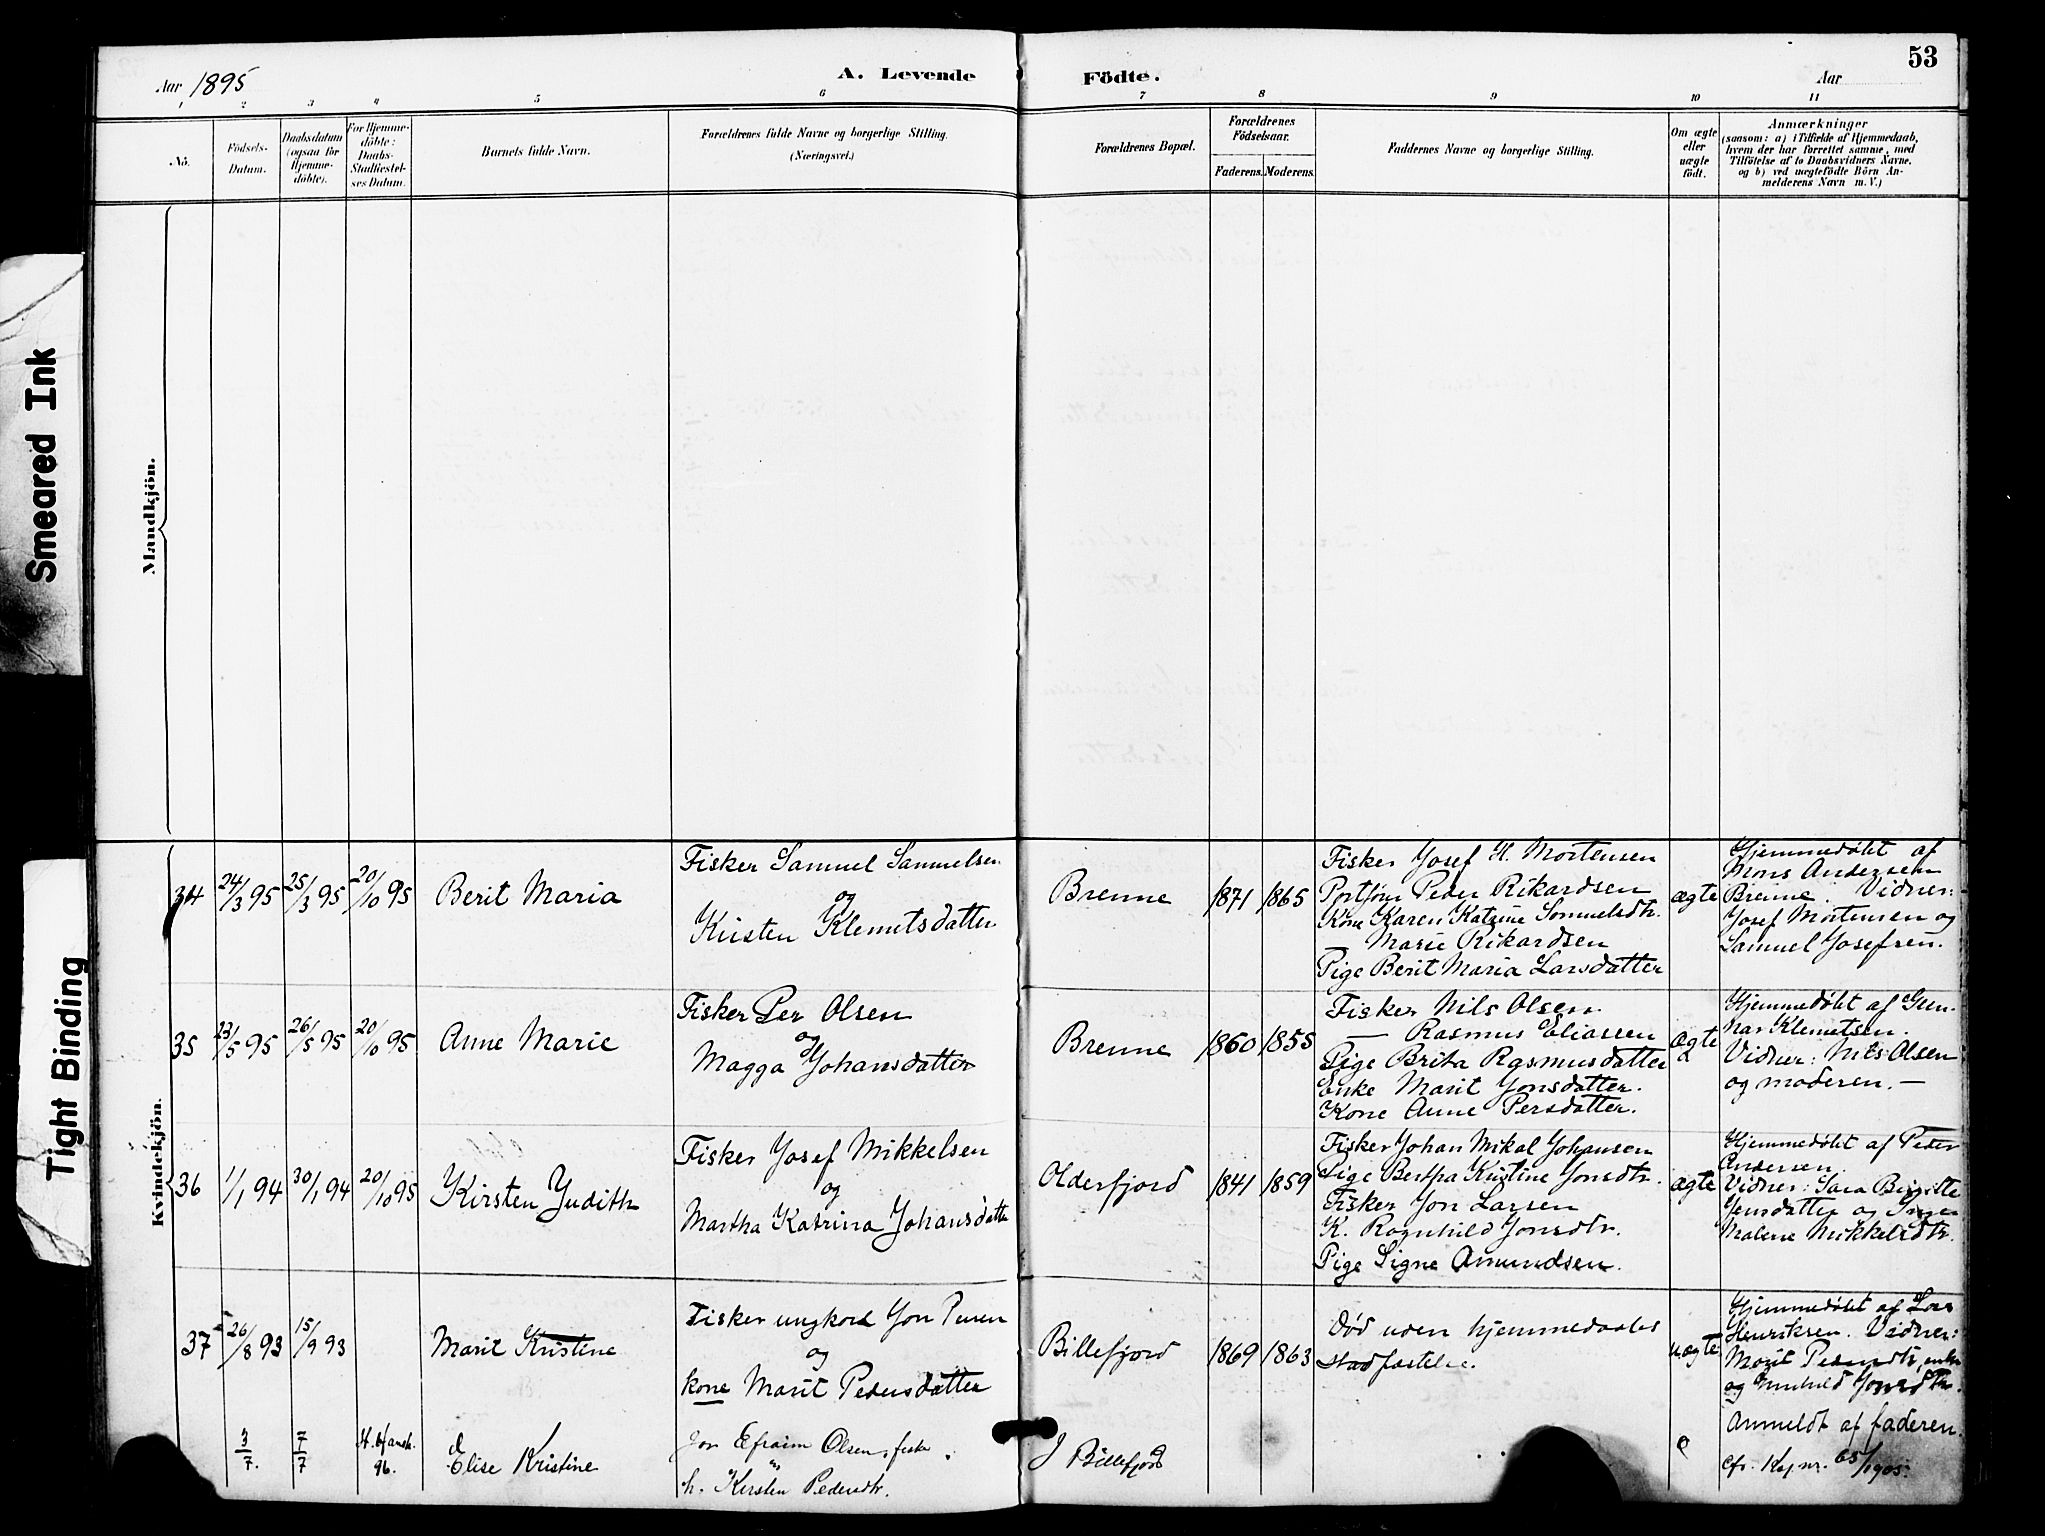 Smeared Ink
Tight Binding
Aar 1895
A. Levende Födte.
Aar
53
1 2 3 4 5 6 7 8 9 10 11
No.
Födsels-
Datum.
Daabsdatum
(ogsaa for
Hjemme-
döbte).
For Hjemme-
döbte:
Daabs-
Stadfæstel-
ses Datum.
Barnets fulde Navn.
Forældrenes fulde Navne og borgerlige Stilling.
(Næringsvei.)
Forældrenes Bopæl.
Forældrenes
Födselsaar.
Faderens. Moderens.
Faddernes Navne og borgerlige Stilling.
Om ægte
eller
uægte
födt.
Anmærkninger
(saasom: a) i Tilfælde af Hjemmedaab,
hvem der har forrettet samme, med
Tilföielse af to Daabsvidners Navne,
og b) ved uægtefödte Börn An-
melderens Navn m. V.)
Mandkjön.
Kvindekjön.
34
24/3 95
25/3 95
20/10 95
Berit Maria
Fisker Samuel Samuelsen
og
Kirsten Klemetsdatter
Brenne
1871
1865
Fisker Josef H. Mortensen
Peder Rikardsen
Kone Karen Katrine Samuelsdtr.
— Marie Rikardsen
Pige Berit Maria Larsdatter
ægte
Hjemmedøbt af
Mons Andersen
Brenne. Vidner:
Josef Mortensen og
Samuel Josefsen.
35
23/5 95
26/5 95
20/10 95
Anne Marie
Fisker Per Olsen
og
Magga Johansdatter
Brenne
1860
1855
Fisker Nils Olsen
— Rasmus Eliassen
Pige Brita Rasmusdatter
Enke Marit Jonsdatter.
Kone Anne Persdatter.
ægte
Hjemmedøbt af Gun-
nar Klemetsen.
Vidner: Nils Olsen
og moderen. —
36
1/1 94
30/1 94
20/10 95
Kirsten Judith
Fisker Josef Mikkelsen
og
Martha Katrina Johansdatter
Olderfjord
1841
1859
Fisker Johan Mikal Johansen
Pige Bertha Kristine Jonsdtr.
Fisker Jon Larsen
K. Ragnhild Jonsdtr.
Pige Signe Amundsen.
ægte
Hjemmedøbt af Peder
Andersen.
Vidner: Sara Birgitte
Jensdatter og Inger
Malene Mikkelsdtr.
37
26/8 93
15/9 93
Marit Kristine
Fisker ungkarl Jon Persen
og
kone Marit Pedersdatter
Billefjord
1869
1863
Død uden hjemmedaabs
stadfæstelse.
uægte
Hjemmedøbt af Lars
Henriksen. Vidner:
Marit Pedersdtr, enke
og Gunhild Jonsdtr.
Anmeldt af faderen.
3/7.
7/7
96.
Elise Kristine
Jon Efraim Olsen, fisker
h. Kirsten Pedersdtr.
J Billefjord
cfr. Kop. nr. 65/1905.